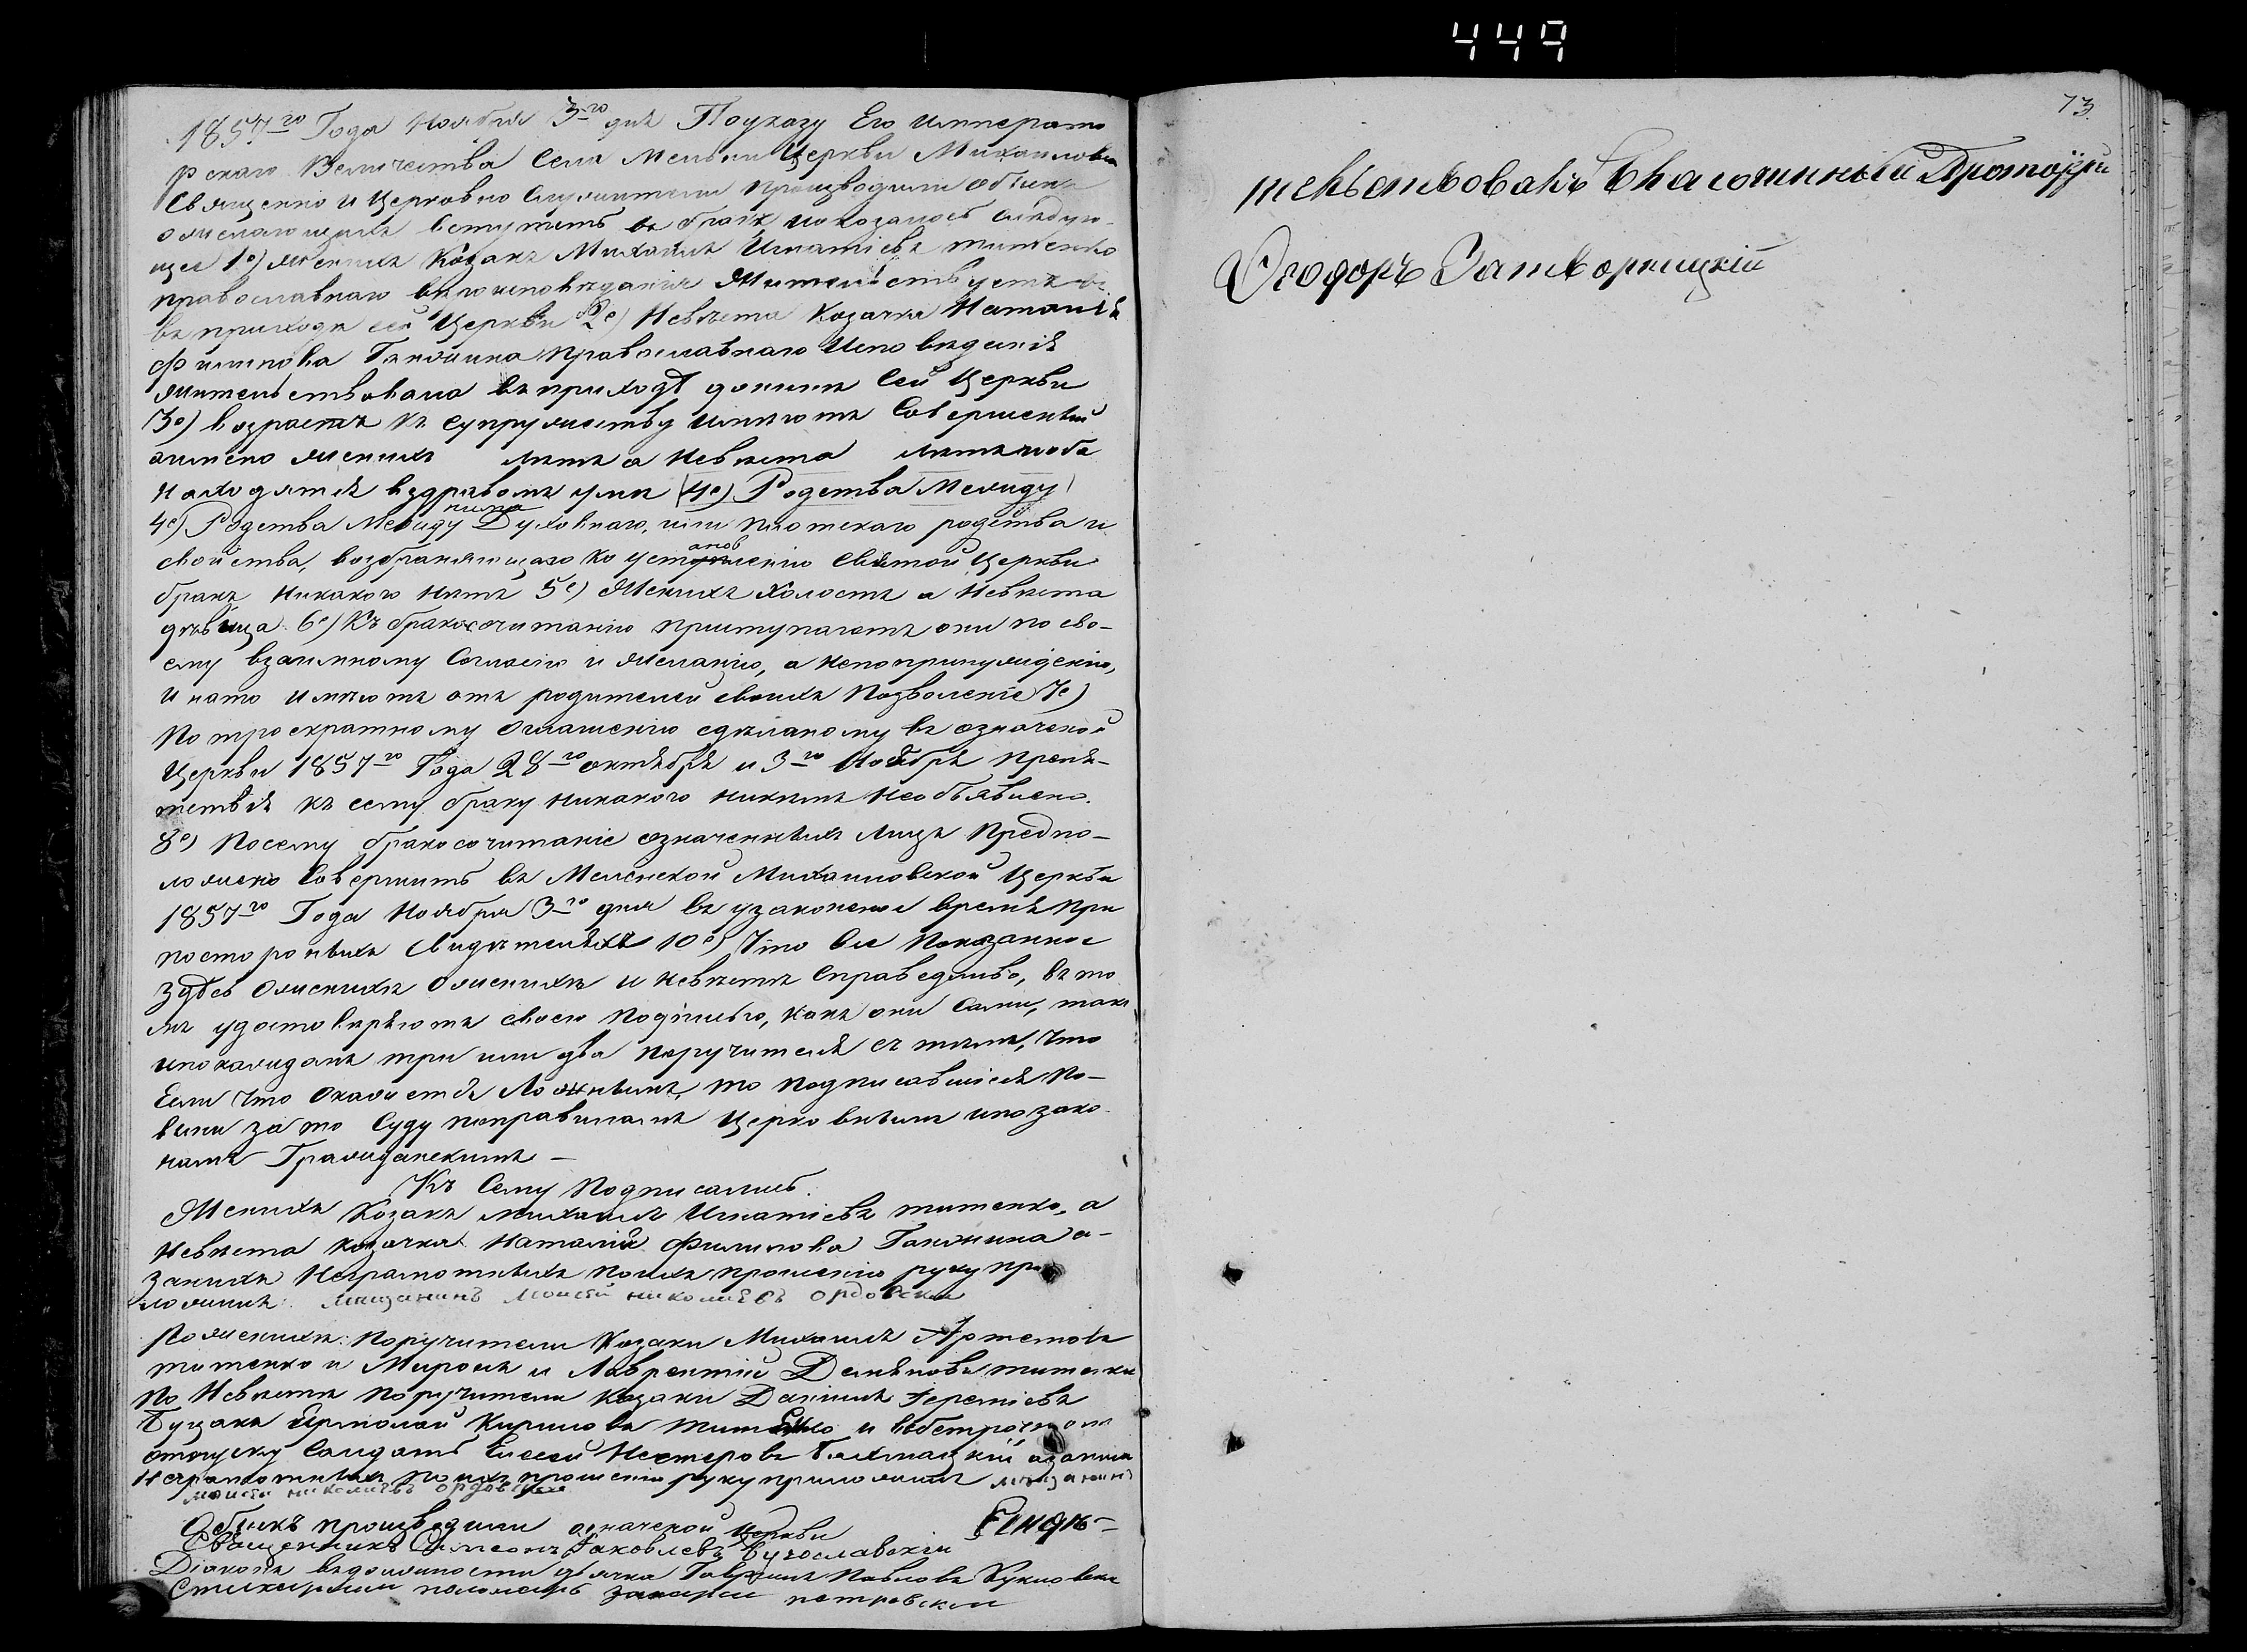 449
73.
1857го Года Ноября 3го дня Поуказу Его Императо
рскаго Величества Села Мельни Церкви Михаиловск
Священно и Церковно Служители производили обыскъ
ожелающихъ вступить въ бракъ, и оказалось следую-
щее 1е) Женихъ Козакъ Михаилъ Игнатіевъ титенко
православнаго вѣроисповѣданія Жительствуетъ въ
въ приходѣ сей Церкви 2е) Невѣста Козачка Наталія
Филипова православнаго Исповѣданія
жительствовала въ приходѣ донынѣ Сей Церкви
3е) возрастъ къ супружеству имѣютъ Совершеный
аимено женихъ лѣтъ а Невѣста лѣтъ иоба
Находятся вздравомъ умѣ (4е) Родства Между)
4е) Родства Между ними Духовнаго, или плотскаго родства и
свойства, возбраняющаго по установленію Святой Церкви
бракъ никакого нѣтъ 5е) Женихъ Холостъ а Невѣста
дѣвица. 6е) Къ бракосочитанію приступаютъ они по сво-
ему взаимному Согласію и Желанію, а непопринужденію,
И нато имѣютъ отъ родителей своихъ Позволеніе 7е)
По троекратному Оглашенію сдѣланому въ означеной
Церкви 1857го Года 28го октября и 3го Ноября препя-
тствія къ сему браку никакого никѣмъ Необъявлено.
8е) Посему бракосочитаніе означенныхъ лицъ Предпо-
ложено Совершить въ Меленской Михаиловской Церкви
1857го Года Ноября 3го дня въ узаконеное время при
постороныхъ Свидѣтеляхъ 10е) Что Все Показанное
здѣсь Оженихѣ Оженихѣ и невѣстѣ Справедливо, въ то
мъ удостовѣряютъ своею Подписью, какъ они Сами, такъ
ипокаждомъ три или два поручителя съ тѣмъ, Что
Если Что Окажется Ложнымъ, то подписавшіеся По-
вины за то Суду поправиламъ Церковнымъ ипозако-
намъ Гражданскимъ –
Къ Сему Подписались.
Женихъ Козакъ михаилъ Игнатіевъ титенко, а
Невѣста козачка Наталія Филипова а-
занихъ Неграмотныхъ поихъ прошенію руку при
ложилъ: Мищанинъ Моисей николаевъ ордовскій
Поженихѣ: поручители Козаки Михаилъ Артемовъ
титенко и Миронъ и Лаврентій Демяновы титенки
По Невѣстѣ поручители козаки Даніилъ Іереміевъ
Ермолай Кириловъ титенко и вбезсрочномъ
отпуску Салдатъ Елисей Нестеровъ Бахмацкій азанихъ
Неграмотныхъ поихъ прошенію руку приложилъ мищанинъ
моисей николаевъ ордовскій
Обыскъ производили означеной Церкви
Священникъ Симеонъ Яковлевъ Бугославскій
Діаконъ вдолжности дьячка Гавріилъ Павловъ
Стихарный поломарь Захарій петровскій
Благочинный Протоіерей
Ѳеодоръ Затворницкій